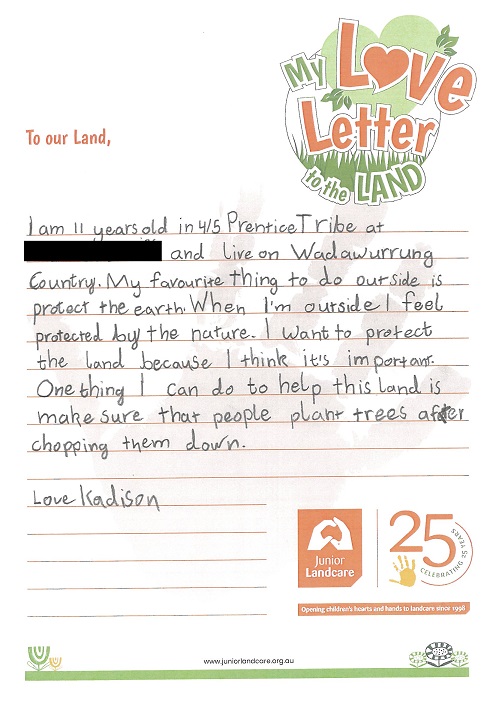 My Love
Letter
to the LAND
To our Land,
I am 11 years old in 4/5 Prentice Tribe at
and live on Wadawurrung
Country. My favourite thing to do outside is
protect the earth. When I'm outside I feel
protected by the nature. I want to protect
the land because I think it's important.
One thing I can do to help this land is
make sure that people plant trees after
chopping them down.
Love Kadison
Junior
Landcare
25
CELEBRATING 25 YEARS
Opening children's hearts and hands to landcare since 1998
www.juniorlandcare.org.au